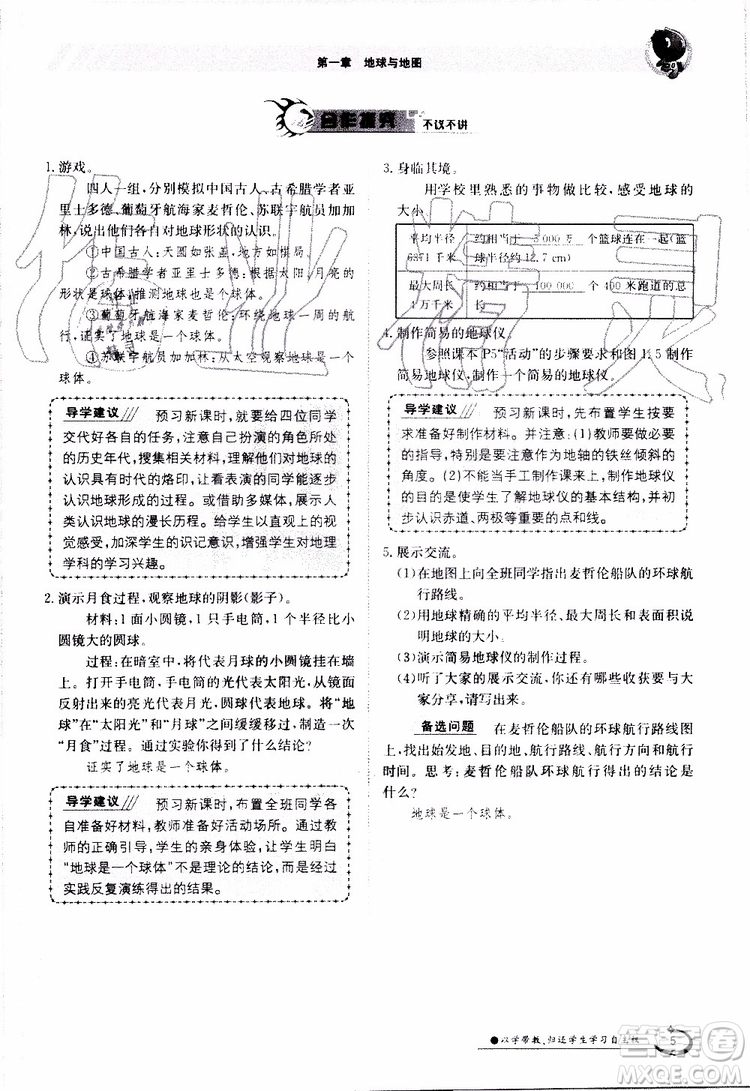 第一章 地球与地图
合作探究 不议不讲
1. 游戏。
四人一组,分别模拟中国古人、古希腊学者亚
里士多德、葡萄牙航海家麦哲伦、苏联宇航员加加
林,说出他们各自对地球形状的认识。
①中国古人:天圆如张盖,地方如棋局。
②古希腊学者亚里士多德:根据太阳,月亮的
形状是球体,推测地球也是个球体。
③葡萄牙航海家麦哲伦:环绕地球一周航
行,证实了地球是一个球体。
④苏联宇航员加加林:从太空观察地球是一个
球体。
导学建议 预习新课时,就要给四位同学
交代好各自的任务,注意自己扮演的角色所处
的历史年代,搜集相关材料,理解他们对地球的
认识具有时代的烙印,让看表演的同学能逐步认
识到地球形成的过程。或借助多媒体,展示人
类认识地球的漫长历程。给学生以直观上的视
觉感知,加深学生的识记意识,增强学生对地理
学科的学习兴趣。
2. 演示月食过程,观察地球的阴影(影子)。
材料:1面小圆镜,1只手电筒,1个半径比小
圆镜大的圆球。
过程:在暗室中,将代表月球的小圆镜挂在墙
上。打开手电筒,手电筒的光代表太阳光,从镜面
反射出来的亮光代表月光。用圆球代表地球。将“地
球”在“太阳光”和“月球”之间缓缓移动,制造一次
“月食”过程。通过实验你得到了什么结论?
证实了地球是一个球体。
导学建议 预习新课时,布置全班同学各
自准备好材料,教师准备好活动场所。通过教
师的正确引导,学生的亲身体验,让学生明白
“地球是一个球体”不是理论的结论,而是经过
实践反复演练得出的结果。
3. 身临其境。
用学校里熟悉的事物做比较,感受地球的
大小
平均半径 约相当于 5 000万 个篮球连在一起(篮
6371千米 球半径约12.7 cm)
最大周长 约相当于 100 000 个400米跑道的总
4万千米 长
4. 制作简易的地球仪。
参照课本P5“活动”的步骤要求和图1.5制作
简易地球仪,制作一个简易的地球仪。
导学建议 预习新课时,先布置学生按要
求准备好制作材料。并注意:(1)教师要有必要
的指导,特别要注意作为地轴的铁丝倾斜的
角度。(2)不能当手工制作课来上,制作地球仪
的目的是使学生了解地球仪的基本结构,并初
步认识赤道、两极等重要的点和线。
5. 展示交流。
(1)在地图上向全班同学指出麦哲伦船队的环球航
行路线。
(2)用地球精确的平均半径、最大周长和表面积说
明地球的大小。
(3)演示简易地球仪的制作过程。
(4)听了大家的展示交流,你还有哪些收获要与大
家分享,请写出来。
备选问题 在麦哲伦船队的环球航行路线图
上,找出始发地、目的地、航行路线、航行方向和航行
时间。思考:麦哲伦船队环球航行得出的结论是
什么?
地球是一个球体。
●以学带教、归还学生学习自主权
5
答案圈
MXQE.COM